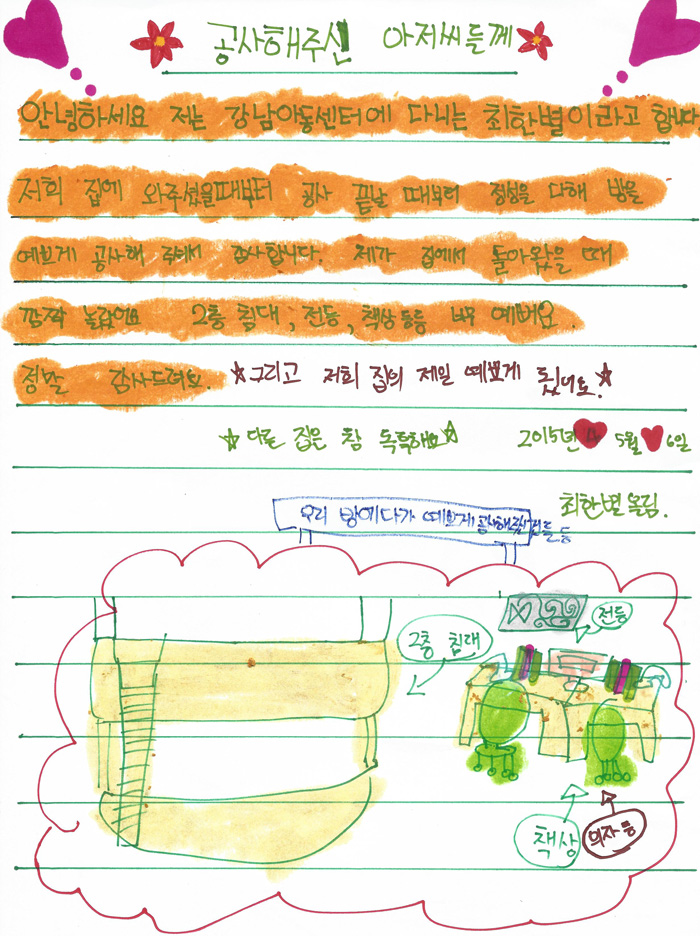 공사해주신 아저씨들께
안녕하세요 저는 강남아동센터에 다니는 최한별이라고 합니다
저희 집에 와주셨을때부터 공사 끝날 때부터 정성을 다해 방을
예쁘게 공사해 주셔서 감사합니다. 제가 집에서 돌아왔을 때
깜짝 놀랐어요 2층 침대, 전등, 책상 등등 너무 예뻐요.
정말 감사드려요. 그리고 저희 집의 제일 예쁘게 됬어요.
다른 집은 참 독특해요 2015년 5월 6일
최한별 올림.
우리 방에다가 예쁘게 공사해주신 것들 등
전등
2층 침대
책상
의자 등